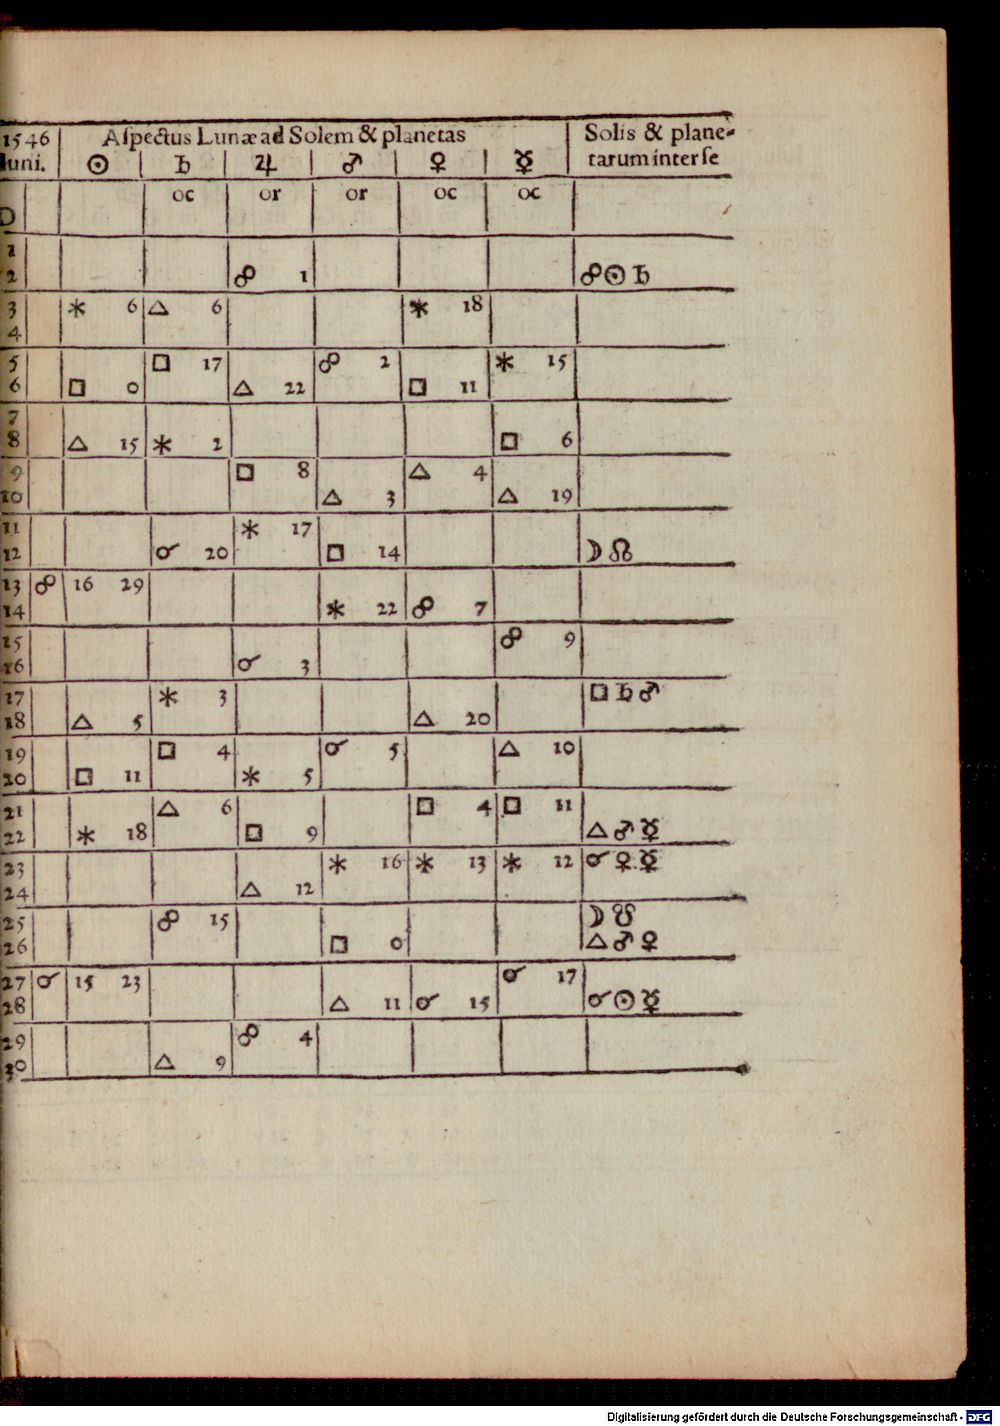 1546 Aſpectus Lunæ ad Solem & planetas Solis & plane⸗
Iuni. ☉ ♄ ♃ ♂ ♀ ☿ tarum inter ſe
oc or or oc oc
D
1
2 ☍ 1 ☍ ☉ ♄
3 ⚹ 6 △ 6 ⚹ 18
4
5 □ 17 ☍ 2 ⚹ 15
6 □ 0 △ 22 □ 11
7
8 △ 15 ⚹ 2 □ 6
9 □ 8 △ 4
10 △ 3 △ 19
11 ⚹ 17
12 ☌ 20 □ 14 ☽ ☊
13 ☍ 16 29
14 ⚹ 22 ☍ 7
15 ☍ 9
16 ☌ 3
17 ⚹ 3 □ ♄ ♂
18 △ 5 △ 20
19 □ 4 ☌ 5 △ 10
20 □ 11 ⚹ 5
21 △ 6 □ 4 □ 11
22 ⚹ 18 □ 9 △ ♂ ☿
23 ⚹ 16 ⚹ 13 ⚹ 12 ☌ ♀ ☿
24 △ 12
25 ☍ 15 ☽ ☋
26 □ 0 △ ♂ ♀
27 ☌ 15 23 ☌ 17
28 △ 11 ☌ 15 ☌ ☉ ☿
29 ☍ 4
30 △ 9
Digitalisierung gefördert durch die Deutsche Forschungsgemeinschaft - DFG